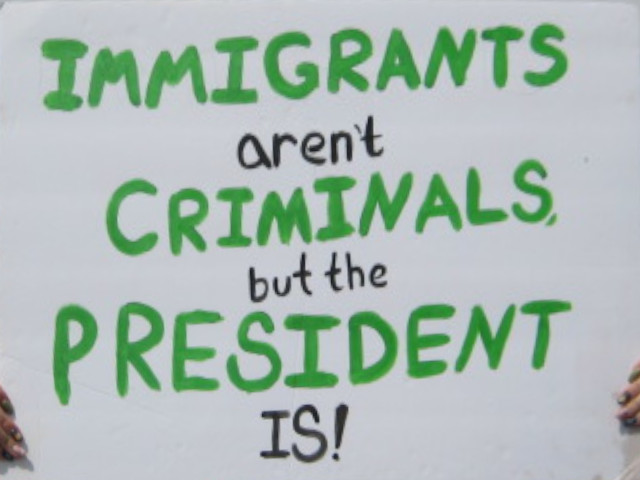 IMMIGRANTS
aren't
CRIMINALS,
but the
PRESIDENT
IS!